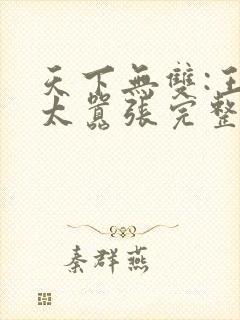 天下無雙:王
太囂張完整
秦群燕